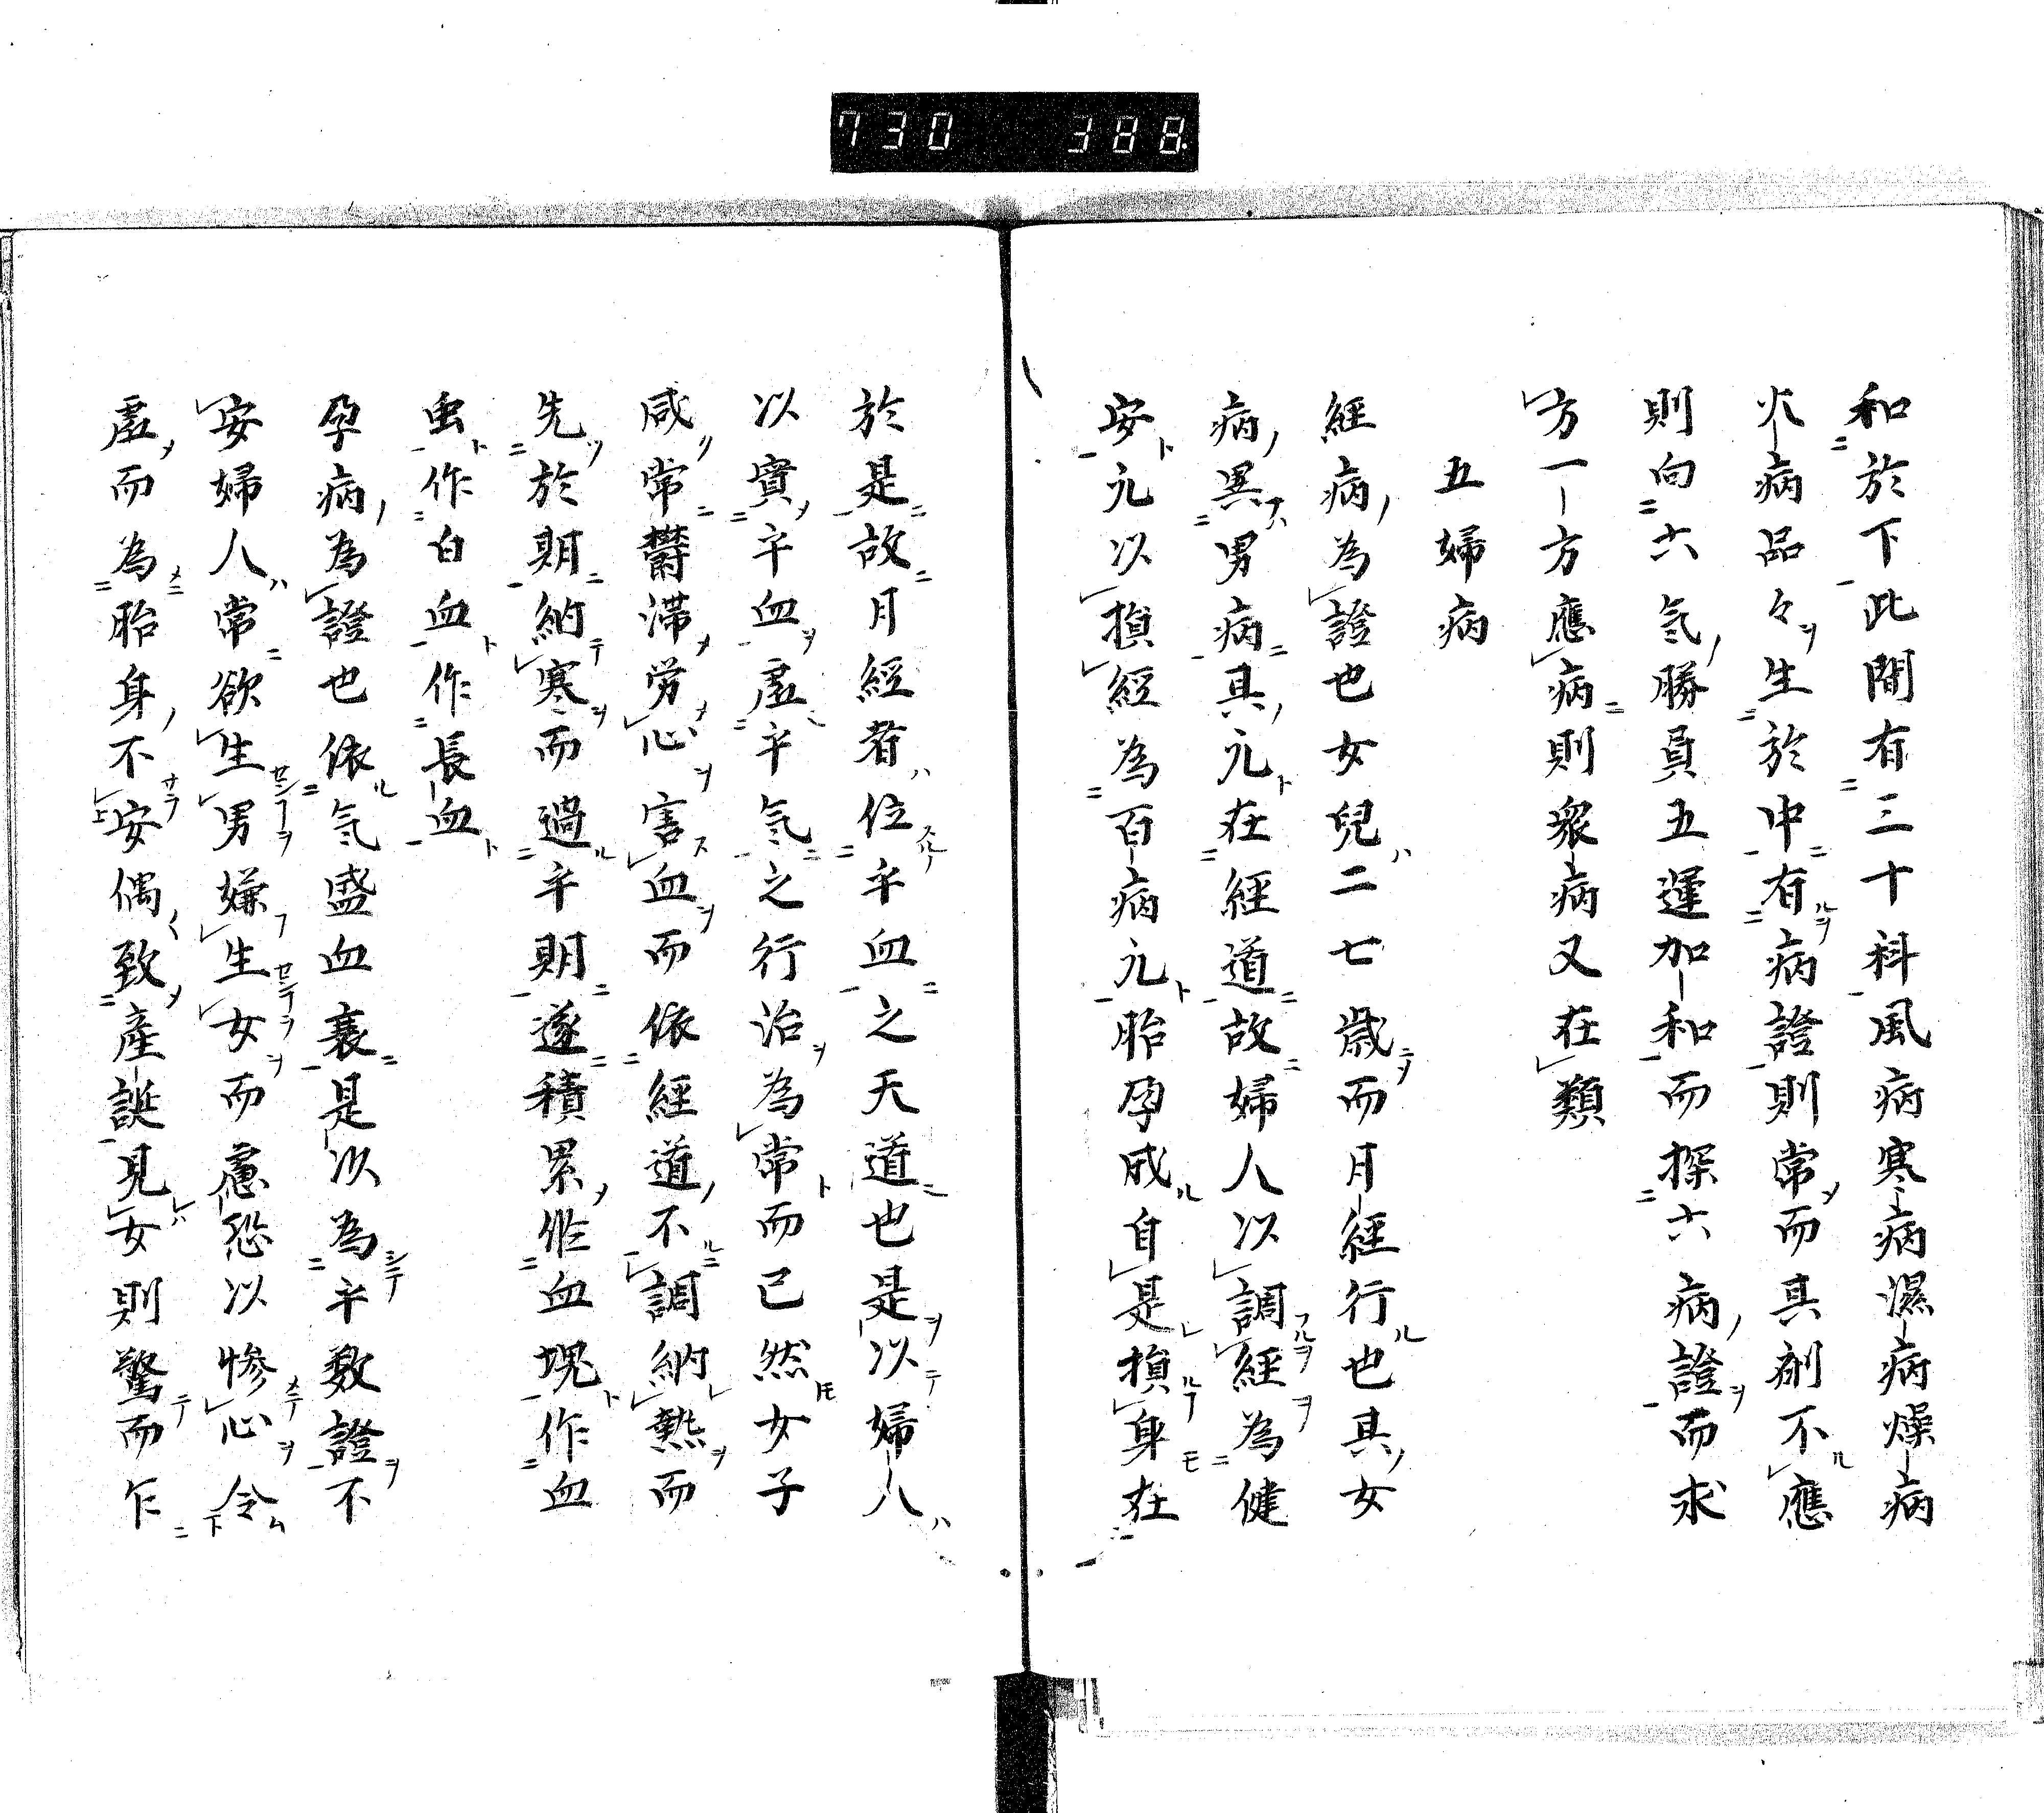 730 388
和於下此間有三十科風病寒病濕病燥病
火病品々生於中有病證則常而具剤不應
則向六氣勝負五運加和而探六病證而求
方一方應病則衆病又在類
五婦病
經病為證也女兒二七歳而月經行也其女
病異男病具元在經道故婦人以調經為健
安元以損經為百病元胎孕成自是損身在
於是故月經者位乎血之天道也是以婦人
以實乎血虚乎氣之行治為常而已然女子
咸常欝滞労心害血而依經道不調納熱而
先於期納寒而過乎期遂積累作血塊作血
虫作白血作長血
孕病為證也依氣盛血衰是以為乎数證不
安婦人常欲生男嫌生女而慮恐以惨心令
虚而為胎身不安偶致産誕見女則驚而乍